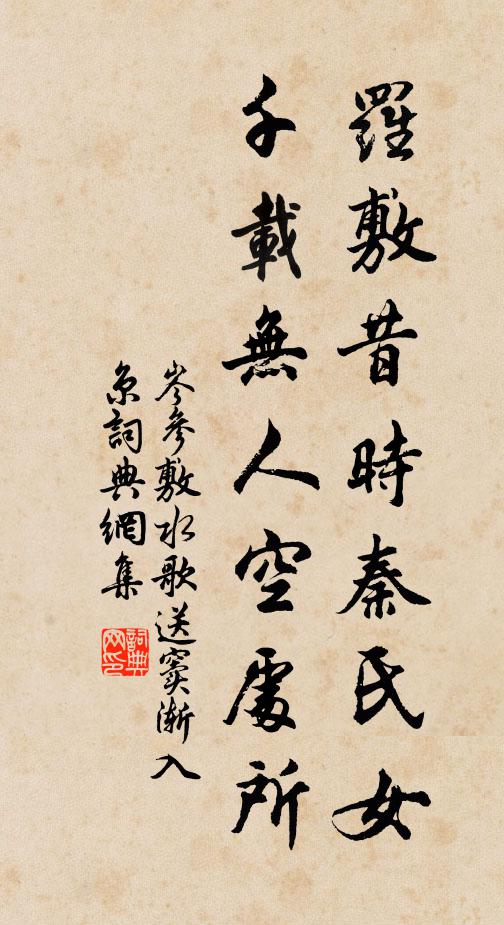 羅敷昔時秦氏女
千載無人空處所
岑參敷水歌送竇漸入
京詞典網集
詞典
网印